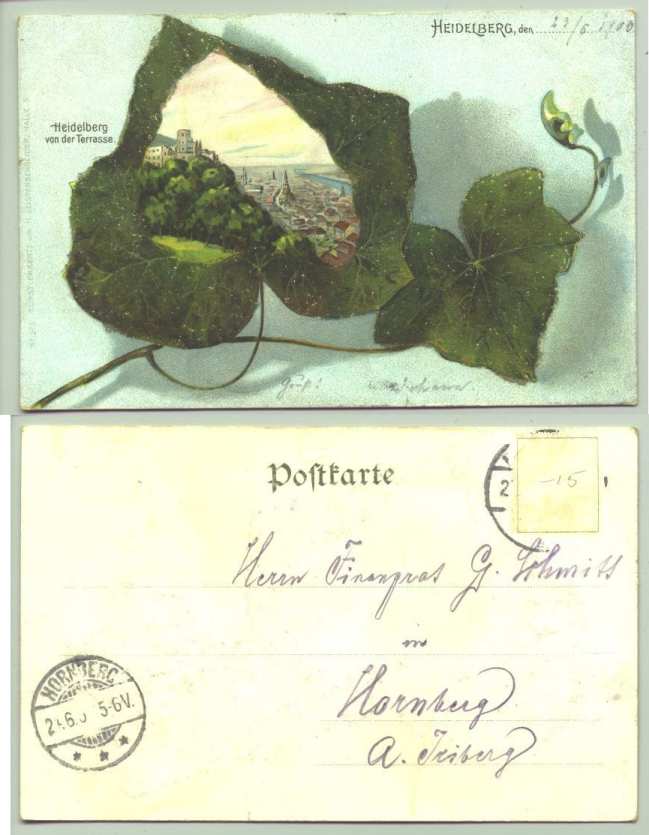 HEIDELBERG, den 23/6 1900
Heidelberg
von der Terrasse.
Gruß!
Postkarte
-15
Herrn Finanzrat G. Schmitt
in
Hornberg
A. Triberg
HORNBERG
5-6V.